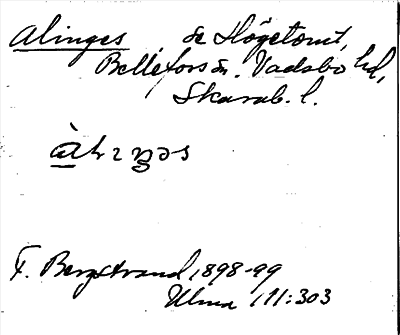 Alinges, se Högetomt,
Bellefors sn. Vadsbo hd,
Skarab. l.
F. Bergstrand 1898-99
Ulma 111:303